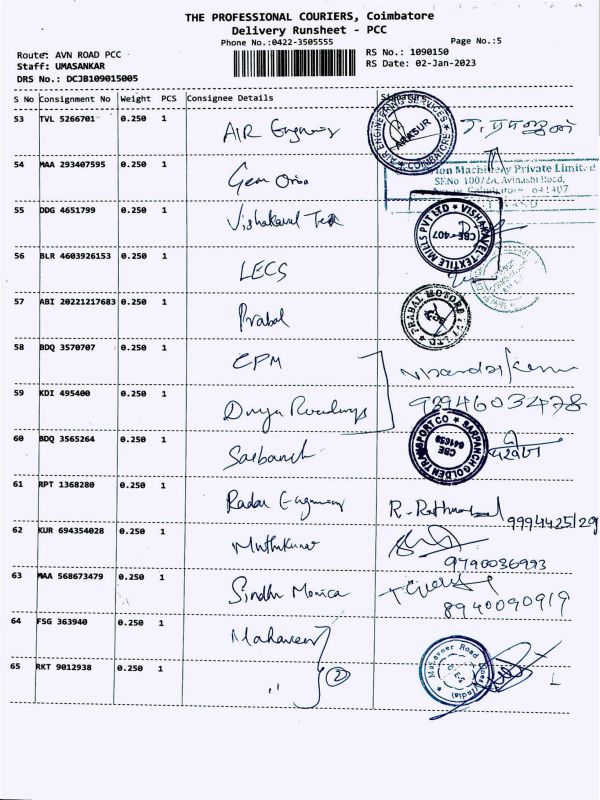 THE PROFESSIONAL COURIERS, Coimbatore
Delivery Runsheet - PCC
Phone No.:0422-3505555
Page No.:5
Route: AVN ROAD PCC
RS No.: 1090150
Staff: UMASANKAR
RS Date: 02-Jan-2023
DRS No.: DCJB109015005
S No Consignment No Weight PCS Consignee Details Signature
53 TVL 5266701 0.250 1 AIR Enginering
AIR ENGINEERING SERVICES ARASUR COIMBATORE
54 MAA 293407595 0.250 1 Gem
Machinery Private Limited
SF.No 100/2A, Avinashi Road,
641407
55 DDG 4651799 0.250 1 Vishakavel Tex
VISHAKAVEL TEXTILE MILLS PVT LTD CBE - 407
56 BLR 4603926153 0.250 1 LECS
57 ABI 20221217683 0.250 1 Prabal
PRABAL MOTORS PVT LTD
58 BDQ 3570707 0.250 1 CPM
59 KDI 495400 0.250 1 Divya Roadways
9894603478
60 BDQ 3565264 0.250 1 Sarbanch
SARPANCH GOLDEN TRANSPORT CO CBE
61 RPT 1368280 0.250 1 Radar Enginering R.
9994425129
62 KUR 694354028 0.250 1 Muthukumar
9790036993
63 MAA 568673479 0.250 1 Sindhu Monica
8940090919
64 FSG 363940 0.250 1 Mahaveer
65 RKT 9012938 0.250 1 ,, 2
Mahaveer Road
(India)